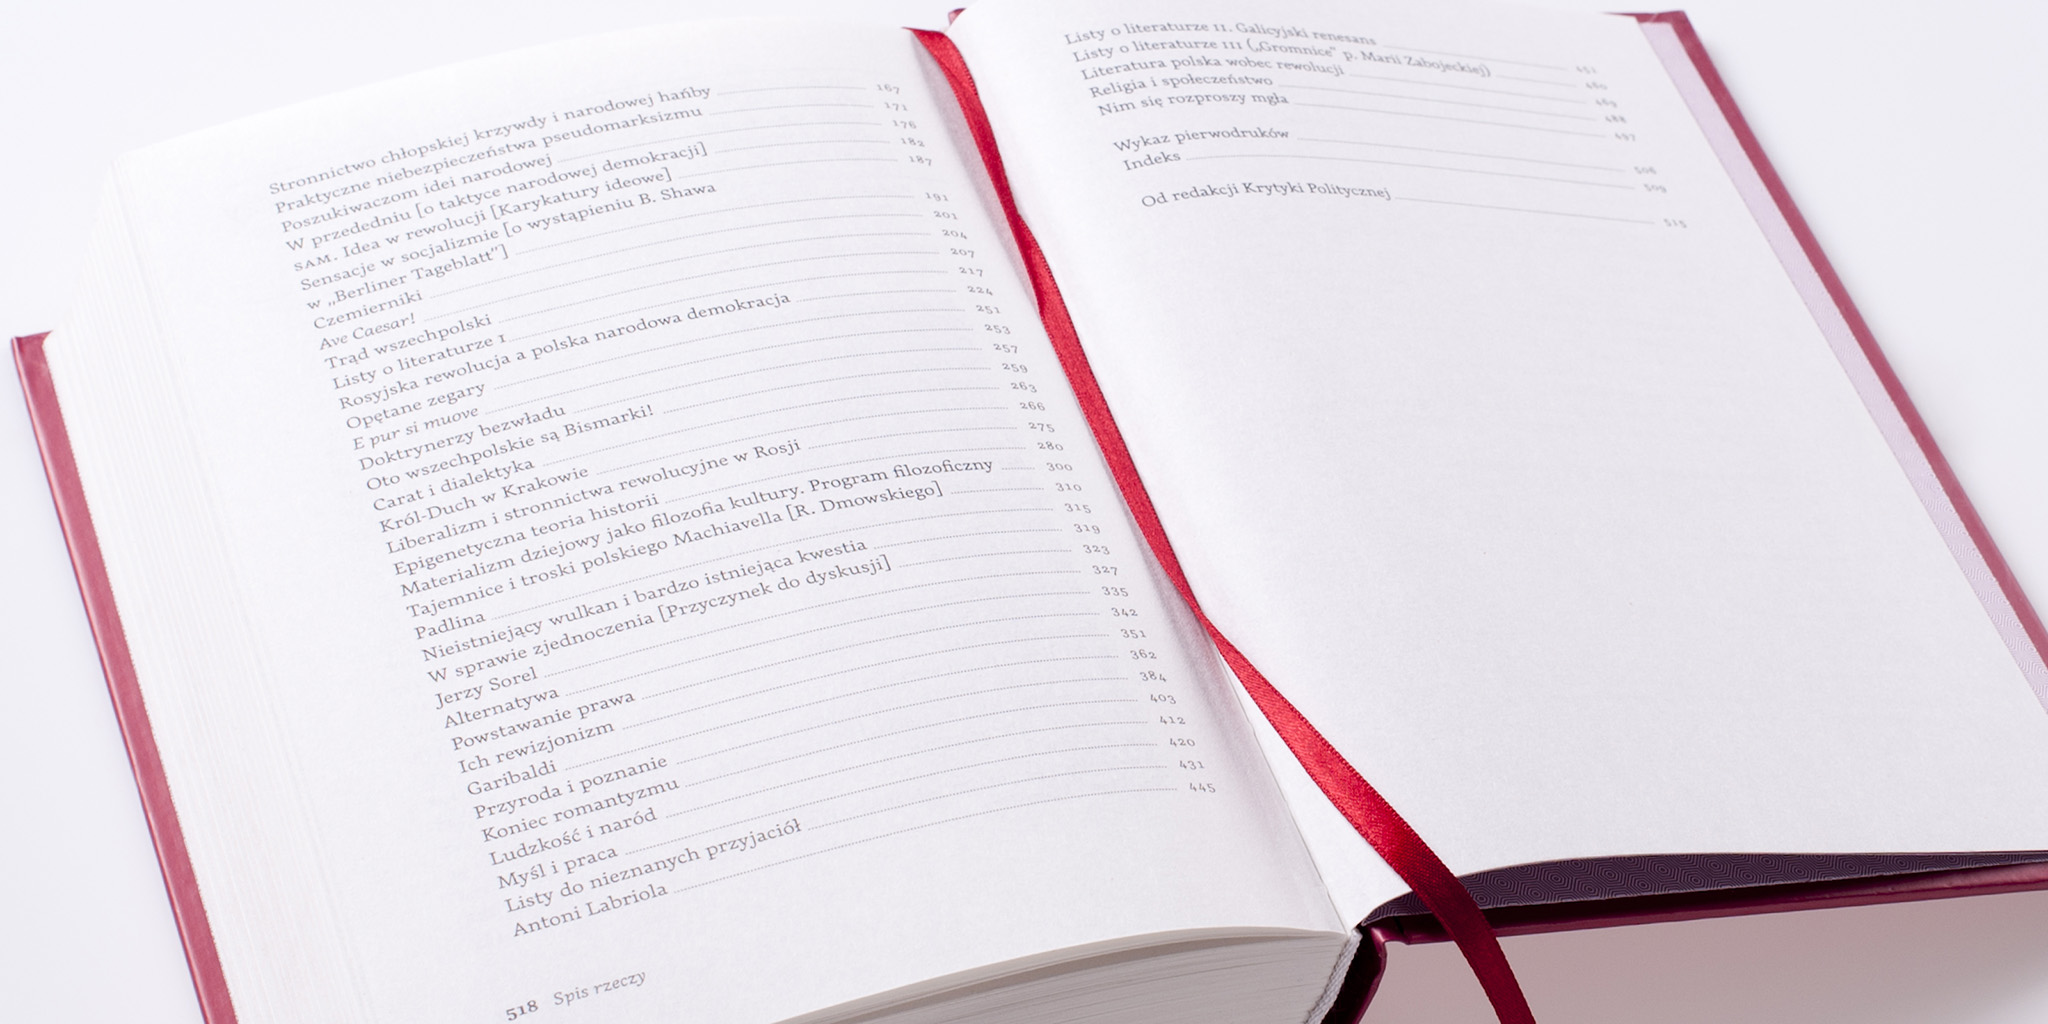 Stronnictwo chłopskiej krzywdy i narodowej hańby 167
Praktyczne niebezpieczeństwa pseudomarksizmu 171
Poszukiwaczom idei narodowej 176
W przededniu [o taktyce narodowej demokracji] 182
SAM. Idea w rewolucji [Karykatury ideowe] 187
Sensacje w socjalizmie [o wystąpieniu B. Shawa
w „Berliner Tageblatt”] 191
Czemierniki 201
Ave Caesar! 204
Trąd wszechpolski 207
Listy o literaturze I 217
Rosyjska rewolucja a polska narodowa demokracja 224
Opętane zegary 251
E pur si muove 253
Doktrynerzy bezwładu 257
Oto wszechpolskie są Bismarki! 259
Carat i dialektyka 263
Król-Duch w Krakowie 266
Liberalizm i stronnictwa rewolucyjne w Rosji 275
Epigenetyczna teoria historii 280
Materializm dziejowy jako filozofia kultury. Program filozoficzny 300
Tajemnice i troski polskiego Machiavella [R. Dmowskiego] 310
Padlina 315
Nieistniejący wulkan i bardzo istniejąca kwestia 319
W sprawie zjednoczenia [Przyczynek do dyskusji] 323
Jerzy Sorel 327
Alternatywa 335
Powstawanie prawa 342
Ich rewizjonizm 351
Garibaldi 362
Przyroda i poznanie 384
Koniec romantyzmu 403
Ludzkość i naród 412
Myśl i praca 420
Listy do nieznanych przyjaciół 431
Antoni Labriola 445
518 Spis rzeczy
Listy o literaturze II. Galicyjski renesans 451
Listy o literaturze III („Gromnice” p. Marii Zabojeckiej) 460
Literatura polska wobec rewolucji 469
Religia i społeczeństwo 488
Nim się rozproszy mgła 497
Wykaz pierwodruków 506
Indeks 509
Od redakcji Krytyki Politycznej 515